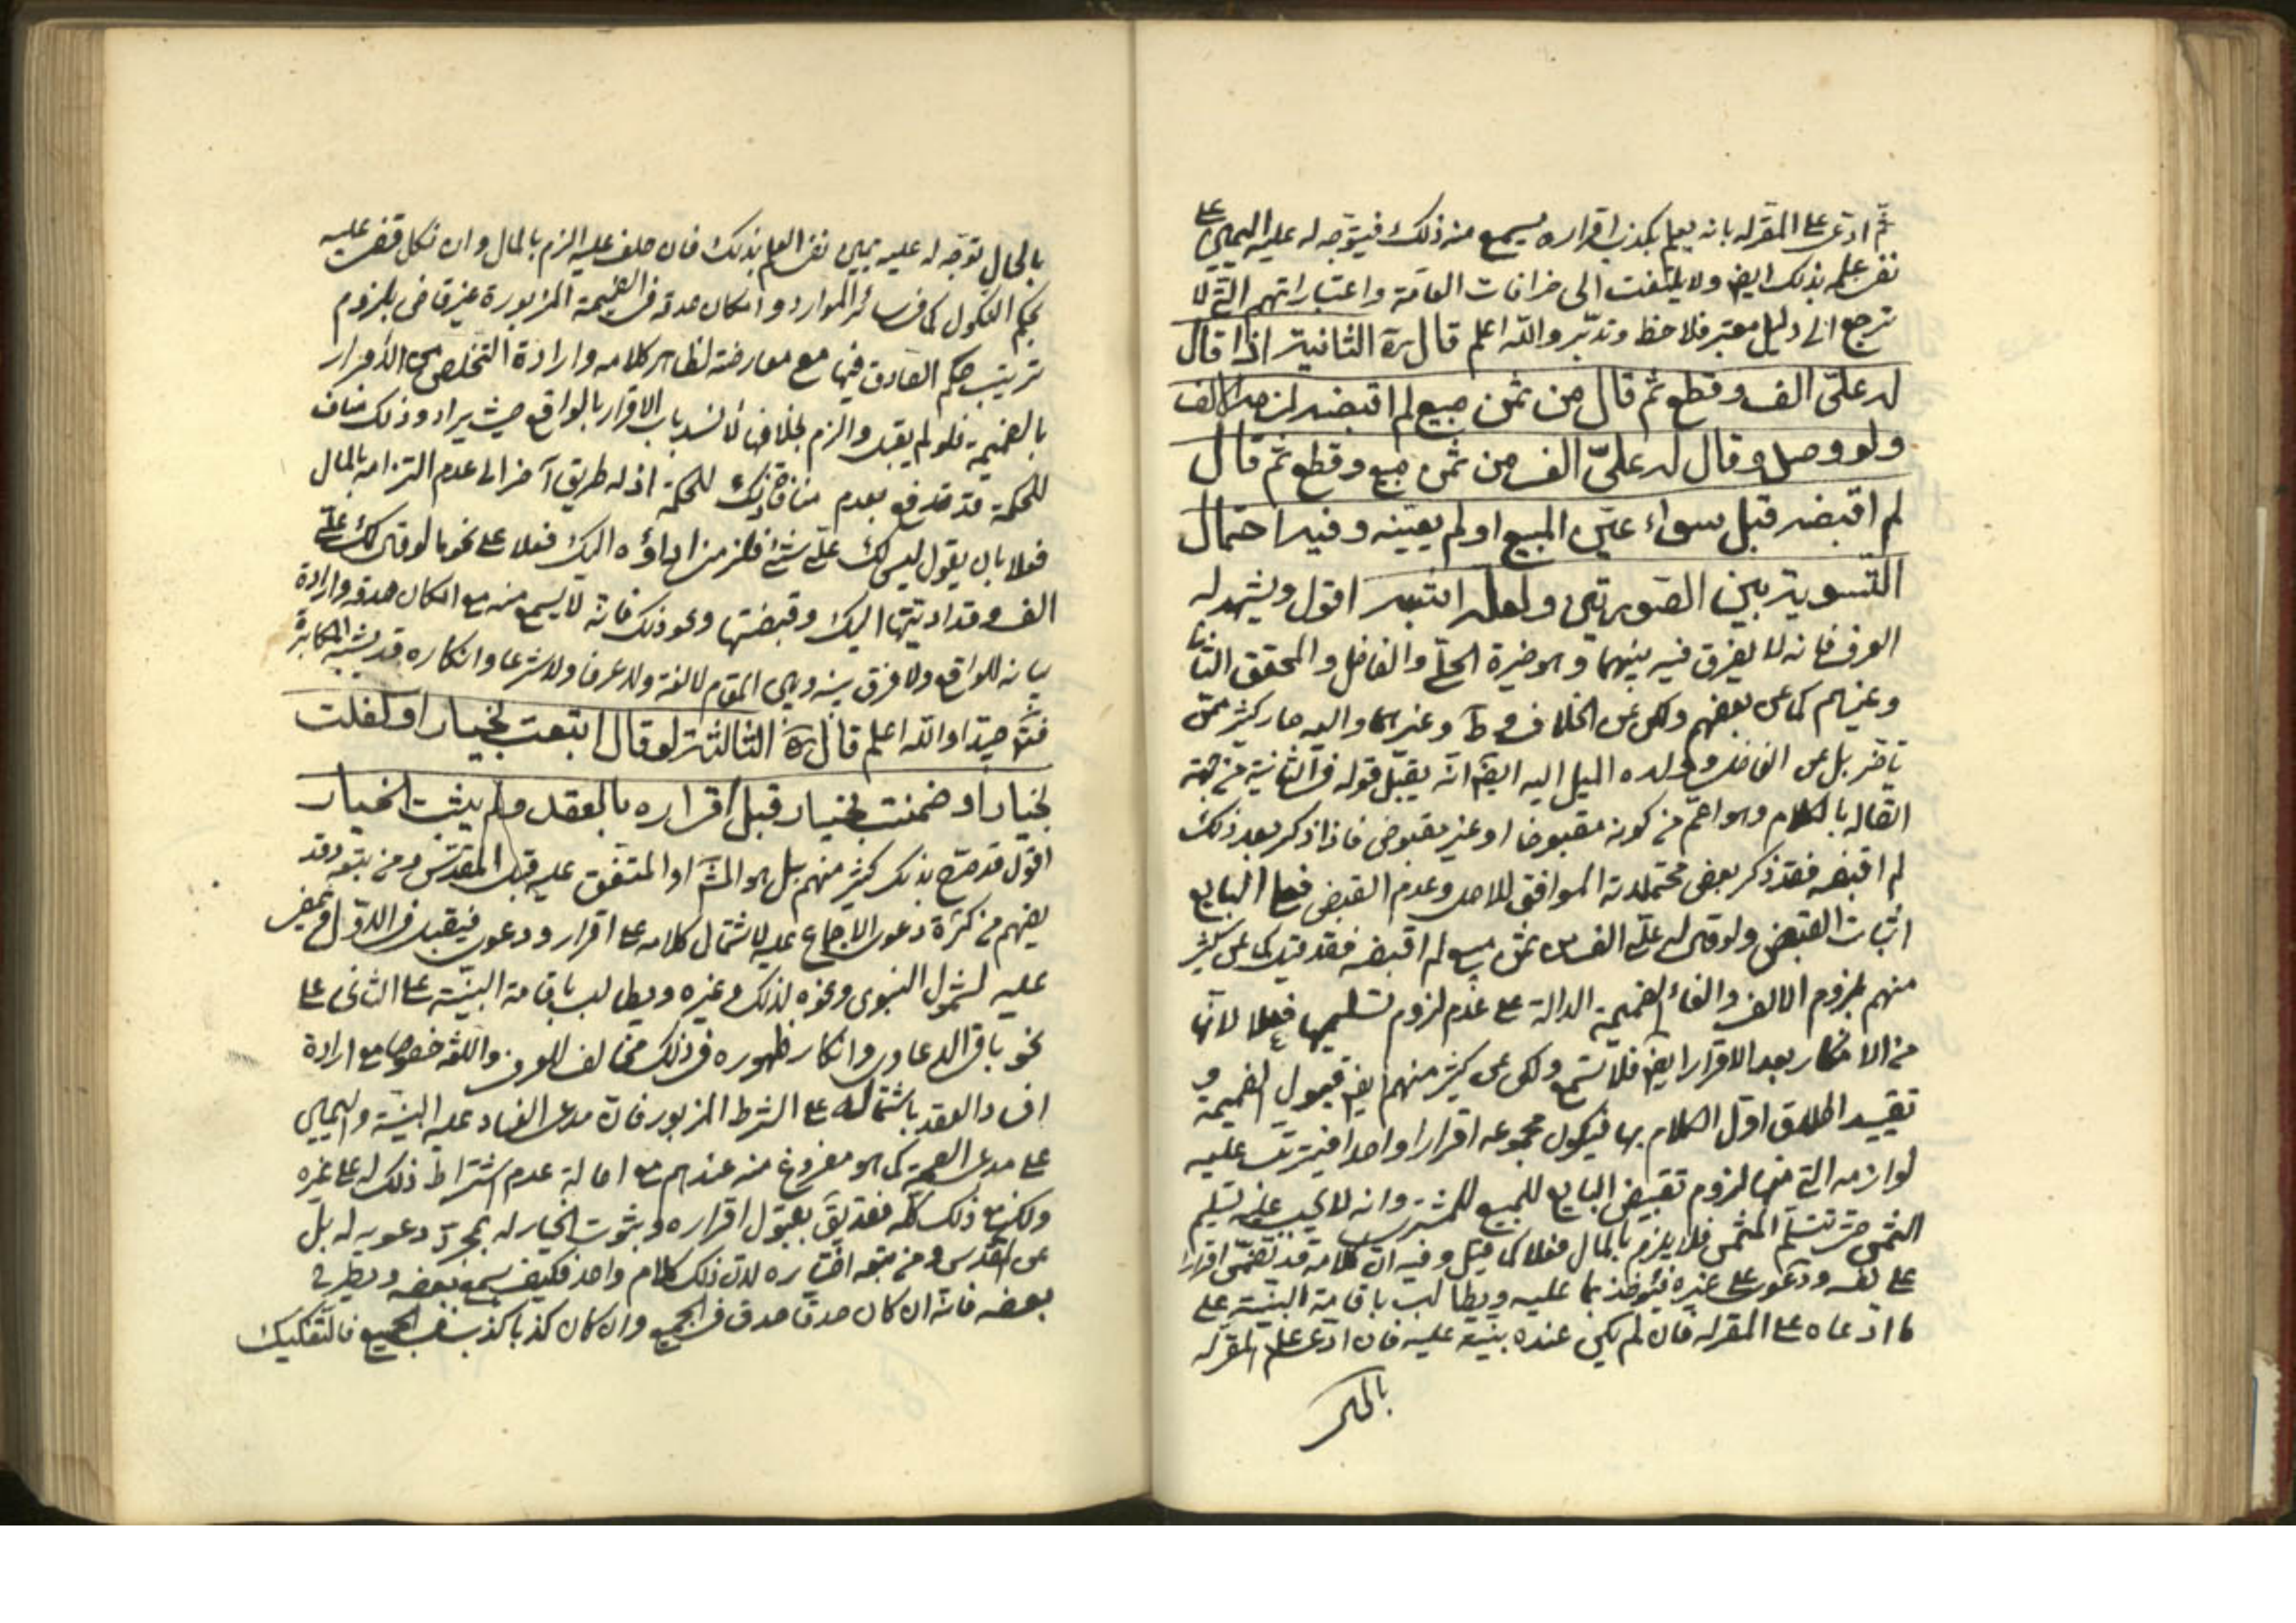 ثم ادعى على المقر له بانه يعلم بكذب اقراره يسمع منه ذلك فيتوجه له عليه اليمين على
نفى علمه بذلك ايض ولا يلتفت الى خرافات العامة واعتباراتهم التى لا
ترجع الى دليل معتبر فلاحظ وتدبر والله اعلم قال ره الثانية اذا قال
له علىّ الف وقطع ثم قال من ثمن مبيع لم اقبضه لزمه الالف
ولو وصل وقال له علىّ الف من ثمن مبيع وقطع ثم قال
لم اقبضه قبل سواء عيّن المبيع او لم يعيّنه وفيه احتمال
التسوية بين الصورتين ولعله اشبه اقول ويشهد له
العرف فانه لا يفرق فيه بينهما وهو خيرة الحلّى والفاضل والمحقق الثانى
وغيرهم كما عن بعضهم ولكن عن الخلاف و ط وغيرهما واليه صار كثير ممن
تاخر بل عن الفاضل وولده الميل اليه ايض انه يقبل قوله فى الثانية من جهة
اتصاله بالكلام وهو اعم من كونه مقبوضا او غير مقبوض فاذا ذكر بعد ذلك
لم اقبضه فقد ذكر بعض محتملاته الموافق للاصل وعدم القبض فعلى البايع
اثبات القبض ولو قال له علىّ الف من ثمن مبيع لم اقبضه فقد قيل كما عن كثير
منهم بلزوم الالف والغاء الضميمة الدالة على عدم لزوم تسليمها فعلا لانها
من الانكار بعد الاقرار ايض فلا تسمع ولكن عن كثير منهم ايض قبول الضميمة و
تقييد اطلاق اول الكلام بها فيكون مجموعه اقرارا واحدا فيترتب عليه
لوازمه التى منها لزوم تقبيض البايع للمبيع للمشترى وانه لا يجب عليه تسليم
الثمن حتى تسلم المثمن فلا يلزم بالمال فعلا كما قيل وفيه ان كلامه قد تضمن اقرارا
على نفسه ودعوى على غيره فيؤخذ بما عليه ويطالب باقامة البينة على
ما ادعاه على المقر له فان لم يكن عنده بينة عليه فان ادعى علم المقر له
بالحال
بالحال توجه له عليه يمين نفى العلم بذلك فان حلف عليه الزم بالمال وان نكل قضى عليه
بحكم النكول كما فى سائر الموارد وامكان صدقه فى الضميمة المزبورة غير قاض بلزوم
ترتيب حكم الصادق فيها مع معارضته لظاهر كلامه وارادة التخلص من الاقرار
بالضميمة فلو لم يقبل والزم بخلافها لانسد باب الاقرار بالواقع حيث يراد وذلك مناف
للحكمة قد تدفع بعدم منافاة ذلك للحكمة اذ له طريق آخر الى عدم التزامه بالمال
فعلا بان يقول ليس لك علىّ شئ فلزمنى اداؤه اليك فعلا على نحو ما لو قال لك علىّ
الف وقد اديتها اليك وقبضتها ونحو ذلك فانه لا يسمع منه مع امكان صدقه وارادة
بيانه للواقع ولا فرق بينه وبين المقام لا لغة ولا عرفا ولا شرعا وانكاره قد يشبه المكابرة
فتدبر جيدا والله اعلم قال ره الثالثة لو قال ابتعت بخيار او كفلت
بخيار او ضمنت بخيار قبل اقراره بالعقد ولم يثبت الخيار
اقول قد صرح بذلك كثير منهم بل هو المشهور او المتفق عليه قبل المقدس ومن يتبعه وقد
يفهم من كثرة دعوى الاجماع عليه لاشتمال كلامه على اقرار ودعوى فيقبل فى الاول ويمضى
عليه لشمول النبوى ونحوه لذلك وغيره ويطالب باقامة البينة على الثانى على
نحو باقى الدعاوى وانكار ظهوره فى ذلك مخالف للعرف واللغة خصوصا مع ارادة
افساد العقد باشتماله على الشرط المزبور فان مدعى الفساد عليه البينة واليمين
على مدعى الصحة كما هو مفروغ منه عندهم مع اصالة عدم اشتراط ذلك له على غيره
ولكن مع ذلك كله فقد يق بقبول اقراره وبثبوت الخيار له بمجرد دعويه له بل
عن المقدس ومن تبعه اختياره لان ذلك كلام واحد فكيف يسمع بعضه ويطرح
بعضه فانه ان كان صدقا صدق فى الجميع وان كان كذبا كذب فى الجميع فالتفكيك